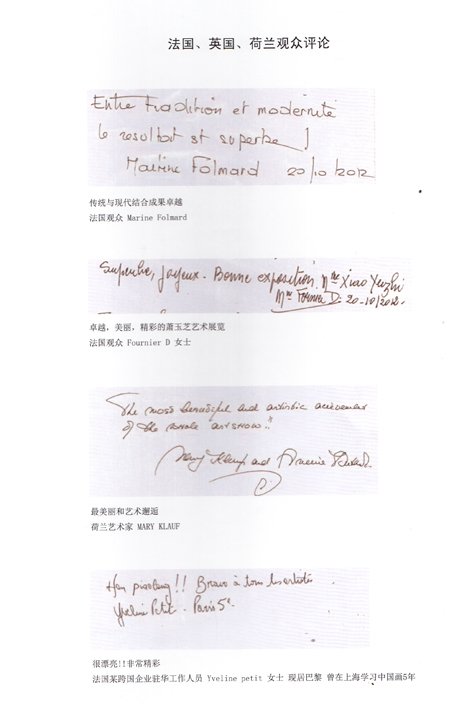 法国、英国、荷兰观众评论
Entre Tradition et modernité
le resultat est superbe
Marine Folmard 20/10/2012
传统与现代结合成果卓越
法国观众 Marine Folmard
Superbe, Joyeux. Bonne exposition. Mme Xiao Yuzhi
Mme Fournier D. 20-10/2012.
卓越，美丽，精彩的萧玉芝艺术展览
法国观众 Fournier D 女士
"The most beautiful and artistic achievement
of the whole artshow!"
Mary Klauf and
最美丽和艺术邂逅
荷兰艺术家 MARY KLAUF
Hen piaolang!! Bravo à tous les artistes
Yveline Petit - Paris 5e
很漂亮!!非常精彩
法国某跨国企业驻华工作人员 Yveline petit 女士 现居巴黎 曾在上海学习中国画5年